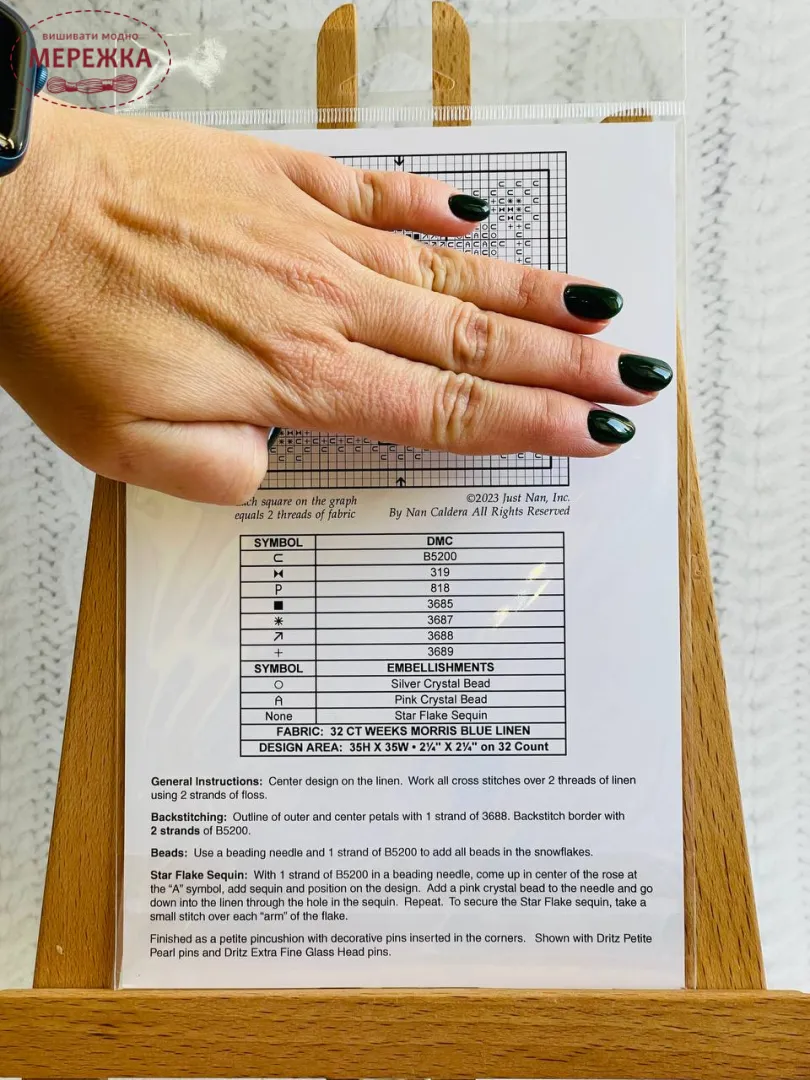 вишивати модно...
МЕРЕЖКА
Each square on the graph
equals 2 threads of fabric
©2023 Just Nan, Inc.
By Nan Caldera All Rights Reserved
SYMBOL DMC
⊂ B5200
⧓ 319
P 818
■ 3685
✳ 3687
↗ 3688
+ 3689
SYMBOL EMBELLISHMENTS
○ Silver Crystal Bead
A Pink Crystal Bead
None Star Flake Sequin
FABRIC: 32 CT WEEKS MORRIS BLUE LINEN
DESIGN AREA: 35H X 35W • 2¼" X 2¼" on 32 Count
General Instructions: Center design on the linen. Work all cross stitches over 2 threads of linen
using 2 strands of floss.
Backstitching: Outline of outer and center petals with 1 strand of 3688. Backstitch border with
2 strands of B5200.
Beads: Use a beading needle and 1 strand of B5200 to add all beads in the snowflakes.
Star Flake Sequin: With 1 strand of B5200 in a beading needle, come up in center of the rose at
the “A” symbol, add sequin and position on the design. Add a pink crystal bead to the needle and go
down into the linen through the hole in the sequin. Repeat. To secure the Star Flake sequin, take a
small stitch over each “arm” of the flake.
Finished as a petite pincushion with decorative pins inserted in the corners. Shown with Dritz Petite
Pearl pins and Dritz Extra Fine Glass Head pins.